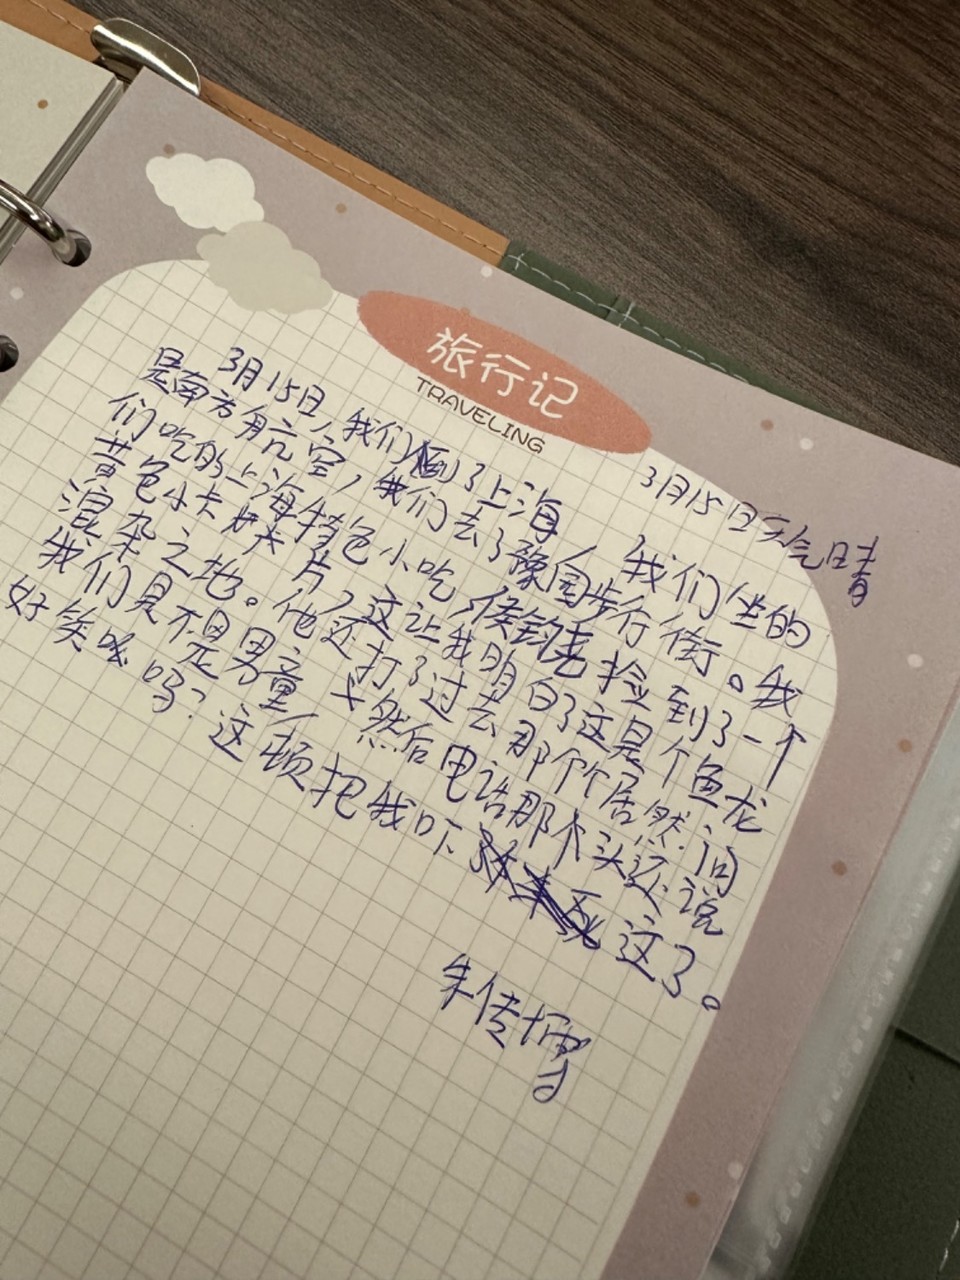 旅行记
TRAVELING
3月15日天气晴
3月15日，我们到了上海，我们坐的
是南方航空，我们去了豫园步行街。我
们吃的上海特色小吃，侯钧 捡到了一个
黄色小卡片，这让我明白了这是个鱼龙
混杂之地。他还打了过去那个居然问
我们是不是男童，然后电话那个头还说
好笑 吗？这顿把我吓 这了。
朱传